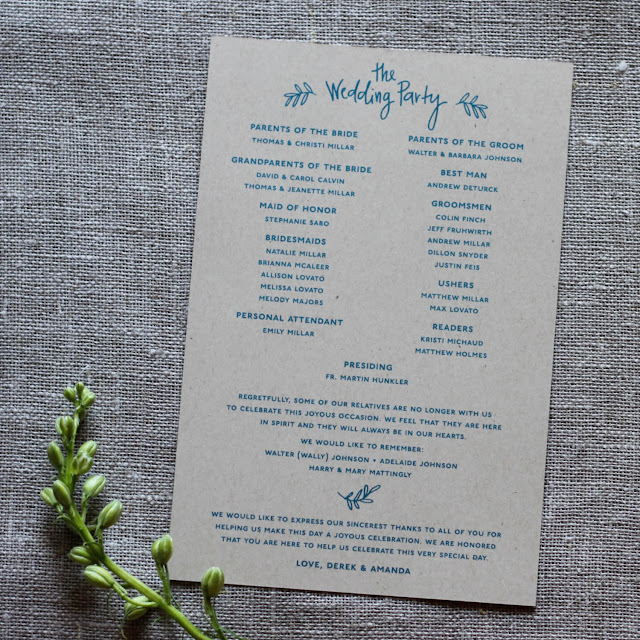 the
Wedding Party
PARENTS OF THE BRIDE
THOMAS & CHRISTI MILLAR
GRANDPARENTS OF THE BRIDE
DAVID & CAROL CALVIN
THOMAS & JEANETTE MILLAR
MAID OF HONOR
STEPHANIE SABO
BRIDESMAIDS
NATALIE MILLAR
BRIANNA MCALEER
ALLISON LOVATO
MELISSA LOVATO
MELODY MAJORS
PERSONAL ATTENDANT
EMILY MILLAR
PARENTS OF THE GROOM
WALTER & BARBARA JOHNSON
BEST MAN
ANDREW DETURCK
GROOMSMEN
COLIN FINCH
JEFF FRUHWIRTH
ANDREW MILLAR
DILLON SNYDER
JUSTIN FEIS
USHERS
MATTHEW MILLAR
MAX LOVATO
READERS
KRISTI MICHAUD
MATTHEW HOLMES
PRESIDING
FR. MARTIN HUNKLER
REGRETFULLY, SOME OF OUR RELATIVES ARE NO LONGER WITH US
TO CELEBRATE THIS JOYOUS OCCASION. WE FEEL THAT THEY ARE HERE
IN SPIRIT AND THEY WILL ALWAYS BE IN OUR HEARTS.
WE WOULD LIKE TO REMEMBER:
WALTER (WALLY) JOHNSON • ADELAIDE JOHNSON
HARRY & MARY MATTINGLY
WE WOULD LIKE TO EXPRESS OUR SINCEREST THANKS TO ALL OF YOU FOR
HELPING US MAKE THIS DAY A JOYOUS CELEBRATION. WE ARE HONORED
THAT YOU ARE HERE TO HELP US CELEBRATE THIS VERY SPECIAL DAY.
LOVE, DEREK & AMANDA